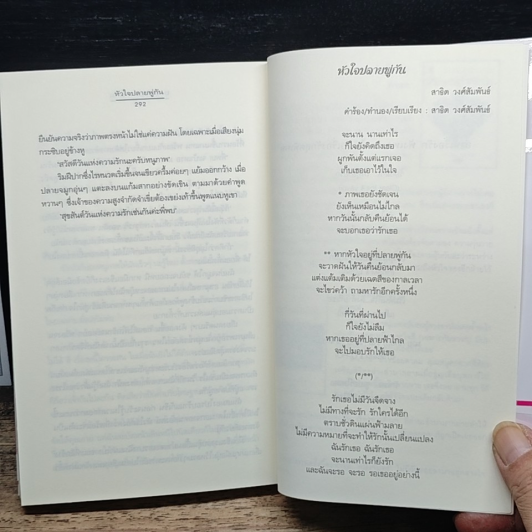 หัวใจปลายพู่กัน
292
ยืนยันความจริงว่าภาพตรงหน้าไม่ใช่แค่ความฝัน โดยเฉพาะเมื่อเสียงนุ่ม
กระซิบอยู่ข้างหู
'สวัสดีวันแห่งความรักนะครับหนูภาพ'
ริมฝีปากซึ่งไรหนวดเริ่มขึ้นจนเขียวครึ้มค่อยๆ แย้มออกกว้าง เมื่อ
ปลายจมูกอุ่นๆ แตะลงบนแก้มสากอย่างขัดเขิน ตามมาด้วยคำพูด
หวานๆ ซึ่งเจ้าของความสูงจำกัดจำเขี่ยต้องเขย่งเท้าขึ้นพูดแนบหูเขา
'สุขสันต์วันแห่งความรักเช่นกันค่ะพี่พบ'
หัวใจปลายพู่กัน
สาธิต วงศ์สัมพันธ์
คำร้อง/ทำนอง/เรียบเรียง : สาธิต วงศ์สัมพันธ์
จะนาน นานเท่าไร
ก็ใจยังคิดถึงเธอ
ผูกพันตั้งแต่แรกเจอ
เก็บเธอเอาไว้ในใจ
* ภาพเธอยังชัดเจน
ยังเห็นเหมือนไม่ไกล
หากวันนั้นกลับคืนย้อนได้
จะบอกเธอว่ารักเธอ
** หากหัวใจอยู่ที่ปลายพู่กัน
จะวาดฝันให้วันคืนย้อนกลับมา
แต่งแต้มเติมด้วยเฉดสีของกาลเวลา
จะไขว่คว้า ถามหารักอีกครั้งหนึ่ง
กี่วันที่ผ่านไป
ก็ใจยังไม่ลืม
หากเธออยู่ที่ปลายฟ้าไกล
จะไปมอบรักให้เธอ
(*/**)
รักเธอไม่มีวันจืดจาง
ไม่มีทางที่จะรัก รักใครได้อีก
ตราบชั่วดินแผ่นฟ้ามลาย
ไม่มีความหมายที่จะทำให้รักนั้นเปลี่ยนแปลง
ฉันรักเธอ ฉันรักเธอ
จะนานเท่าไรก็ยังรัก
และฉันจะรอ จะรอ รอเธออยู่อย่างนี้